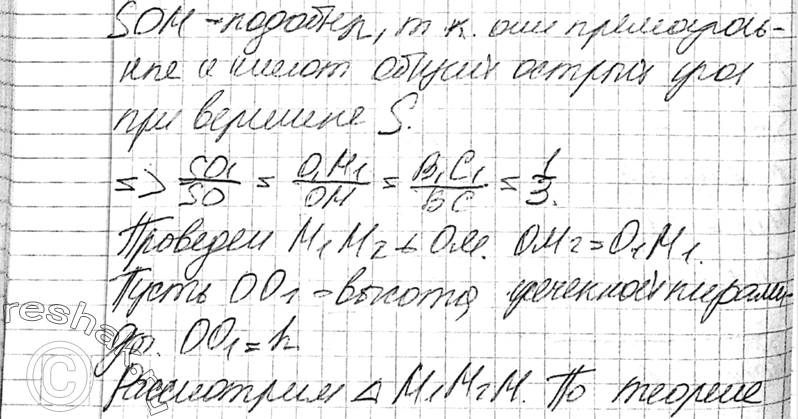 SOM - подобны, т.к. они прямоуголь-
ные и имеют общий острый угол
при вершине S.
=> SO₁/SO = O₁M₁/OM = B₁C₁/BC = 1/3.
Проведем M₁M₂ ⊥ OM. OM₂ = O₁M₁.
Пусть OO₁ - высота усеченной пирами-
ды. OO₁ = h
Рассмотрим △ M₁M₂M. По теореме
reshak.ru
©